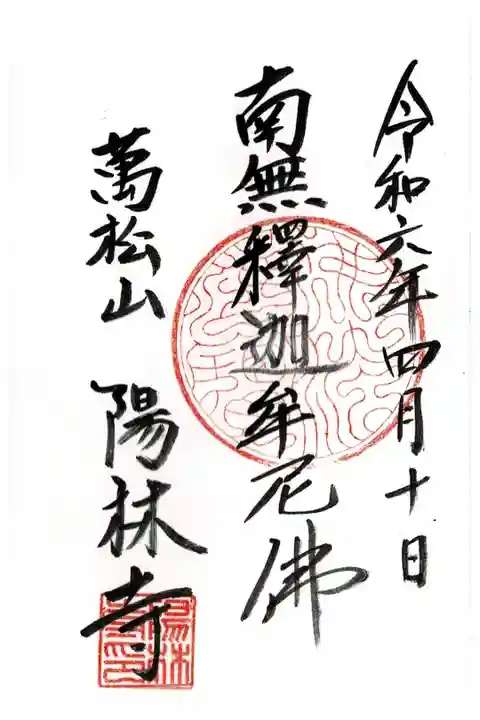 令和六年四月十日
南無釋迦牟尼佛
萬松山 陽林寺